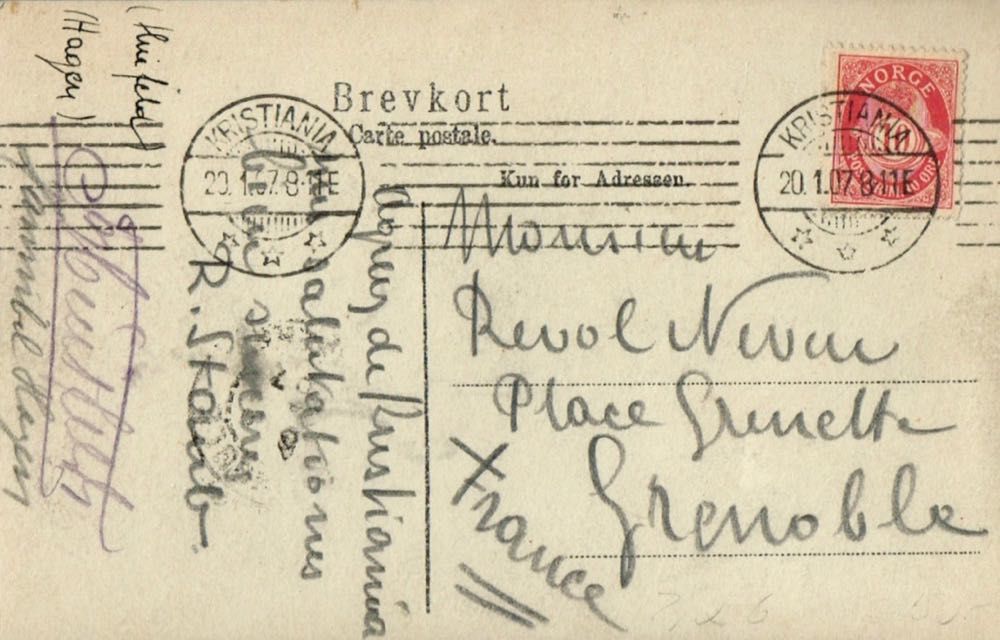 Brevkort
Carte postale.
Kun for Adressen.
NORGE
KRISTIANIA
20.1.07.8-11E
KRISTIANIA
20.1.07.8-11E
Monsieur
Revol Neveu
Place Grenette
Grenoble
France
de Kristiania
salutations
R. Staub
Hagen
(Hagen)